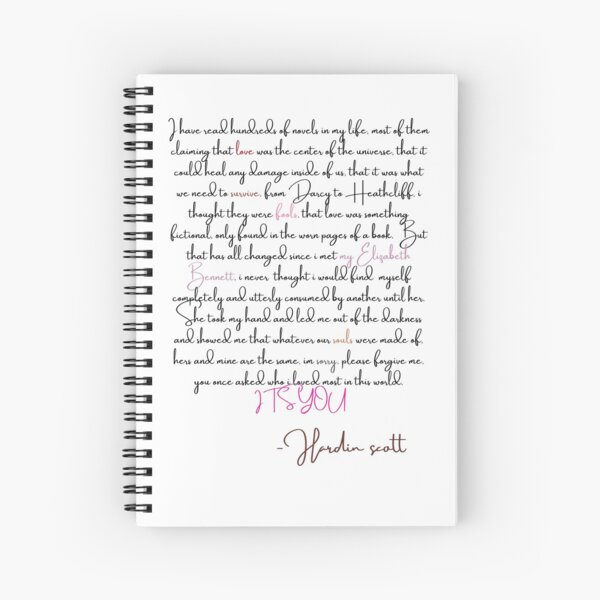 I have read hundreds of novels in my life, most of them
claiming that love was the center of the universe, that it
could heal any damage inside of us, that it was what
we need to survive, from Darcy to Heathcliff, i
thought they were fools, that love was something
fictional, only found in the worn pages of a book. But
that has all changed since i met my Elizabeth
Bennett, i never thought i would find myself
completely and utterly consumed by another until her.
She took my hand and led me out of the darkness
and showed me that whatever our souls were made of,
hers and mine are the same, im sorry, please forgive me.
you once asked who i loved most in this world.
ITS YOU
-Hardin scott